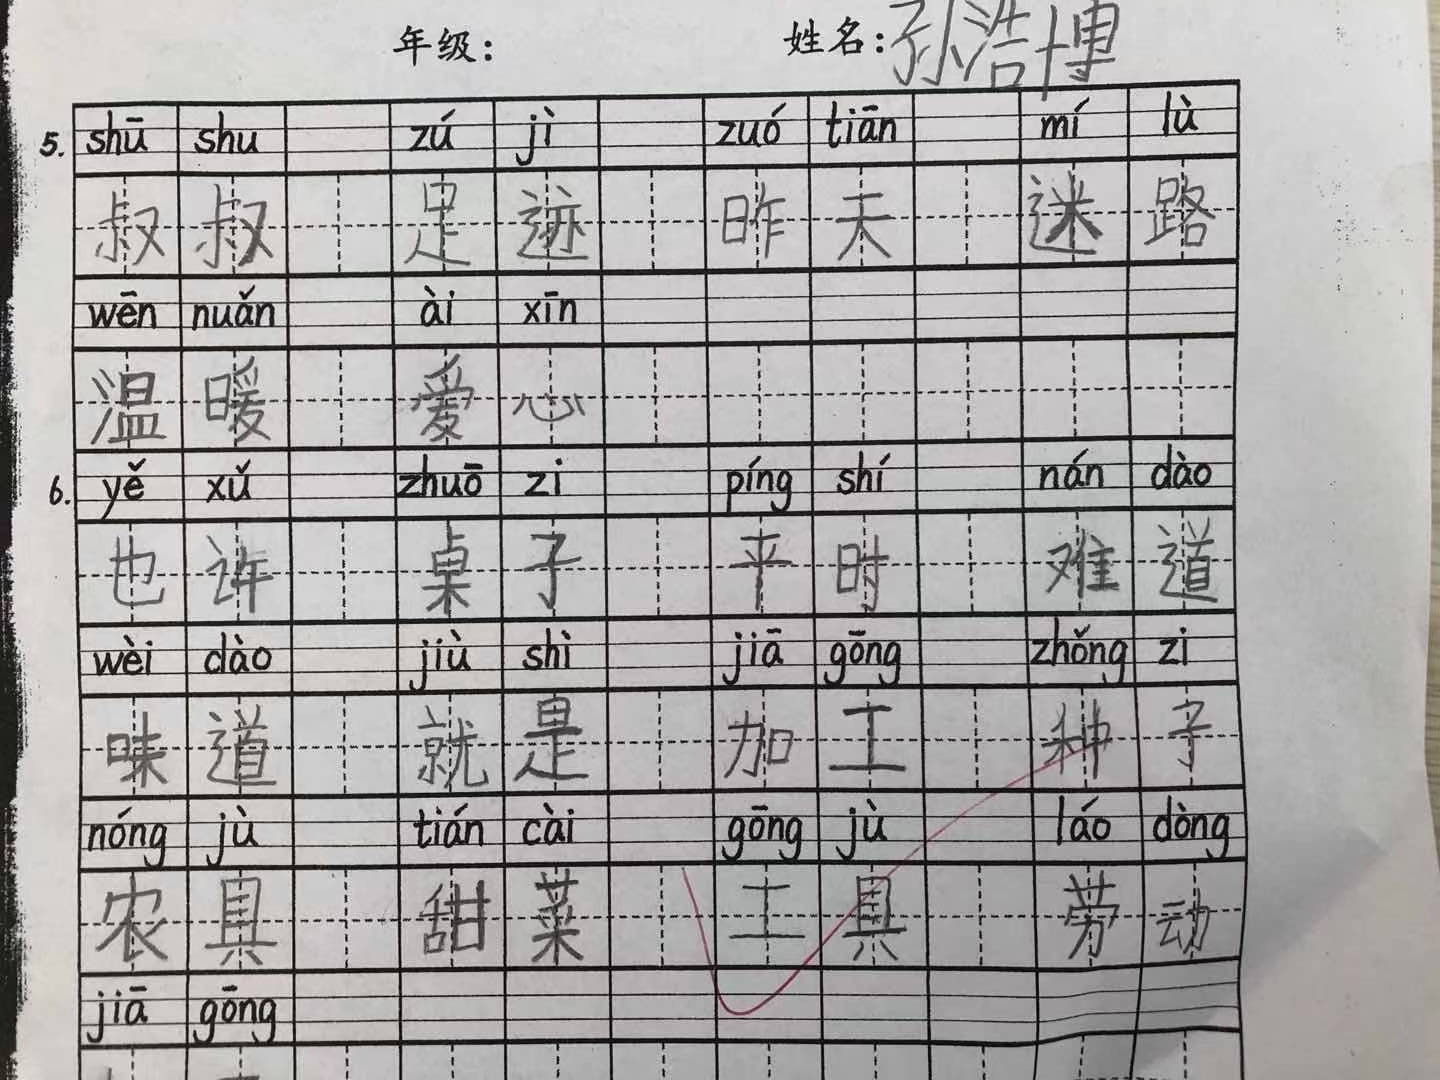 年级： 姓名：孙浩博
5. shū shu zú jì zuó tiān mí lù
叔叔 足迹 昨天 迷路
wēn nuǎn ài xīn
温暖 爱心
6. yě xǔ zhuō zi píng shí nán dào
也许 桌子 平时 难道
wèi dào jiù shì jiā gōng zhǒng zi
味道 就是 加工 种子
nóng jù tián cài gōng jù láo dòng
农具 甜菜 工具 劳动
jiā gōng